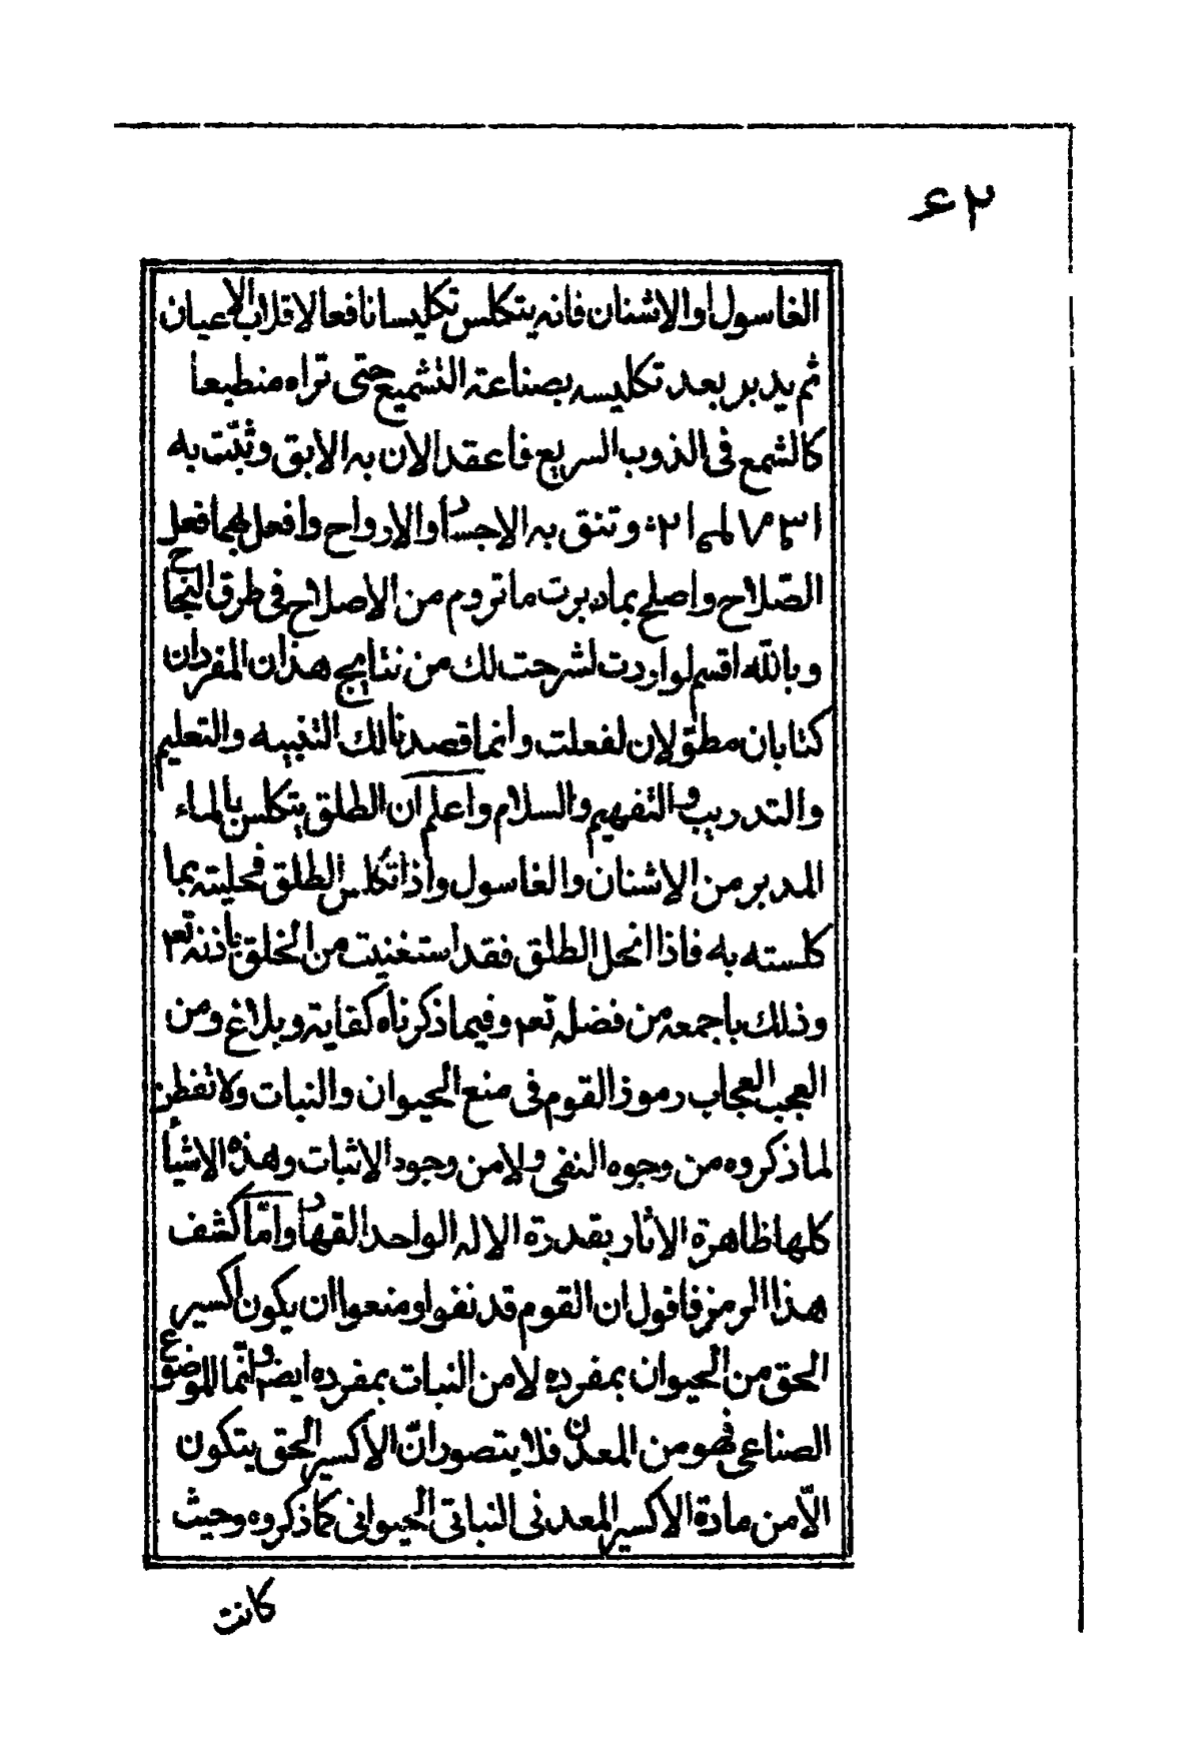 ٢٤
الغاسول والاشنان فانه يتكلس تكليسا نافعا لاقلاب الاعيان
ثم يدبر بعد تكليسه بصناعة التشميع حتى تراه منطبعا
كالشمع فى الذوب السريع فاعقد الان به الابق وثبّت به
وتنق به الاجساد والارواح وافعل بهما فعل
الصّلاح واصلح بما دبرت ما تروم من الاصلاح فى طرق النجاح
وبالله اقسم لو اردت لشرحت لك من نتايج هذان المفردان
كتابان مطوّلان لفعلت وانما قصدنا لك التنبيه والتعليم
والتدريب والتفهيم والسلام واعلم ان الطلق يتكلس بالماء
المدبر من الاشنان والغاسول واذا تكلس الطلق فحليته بما
كلسته به فاذا انحل الطلق فقد استغنيت من الخلق باذنه تع
وذلك باجمعه من فضله تع وفيما ذكرناه كفاية وبلاغ ومن
العجب العجاب رموز القوم فى منع الحيوان والنبات ولا تفطن
لما ذكروه من وجوه النفى ولا من وجود الاثبات وهذه الاشيأ
كلها ظاهرة الاثار بقدرة الاله الواحد القهار وامّا كشف
هذا الرمز فاقول ان القوم قد نفوا ومنعوا ان يكون اكسير
الحق من الحيوان بمفرده لا من النبات بمفرده ايضا وانّما الموضوع
الصناعى فهو من المعدن فلا يتصور انّ الاكسير الحق يتكون
الّا من مادة الاكسير المعدنى النباتى الحيوانى كما ذكروه وحيث
كانت